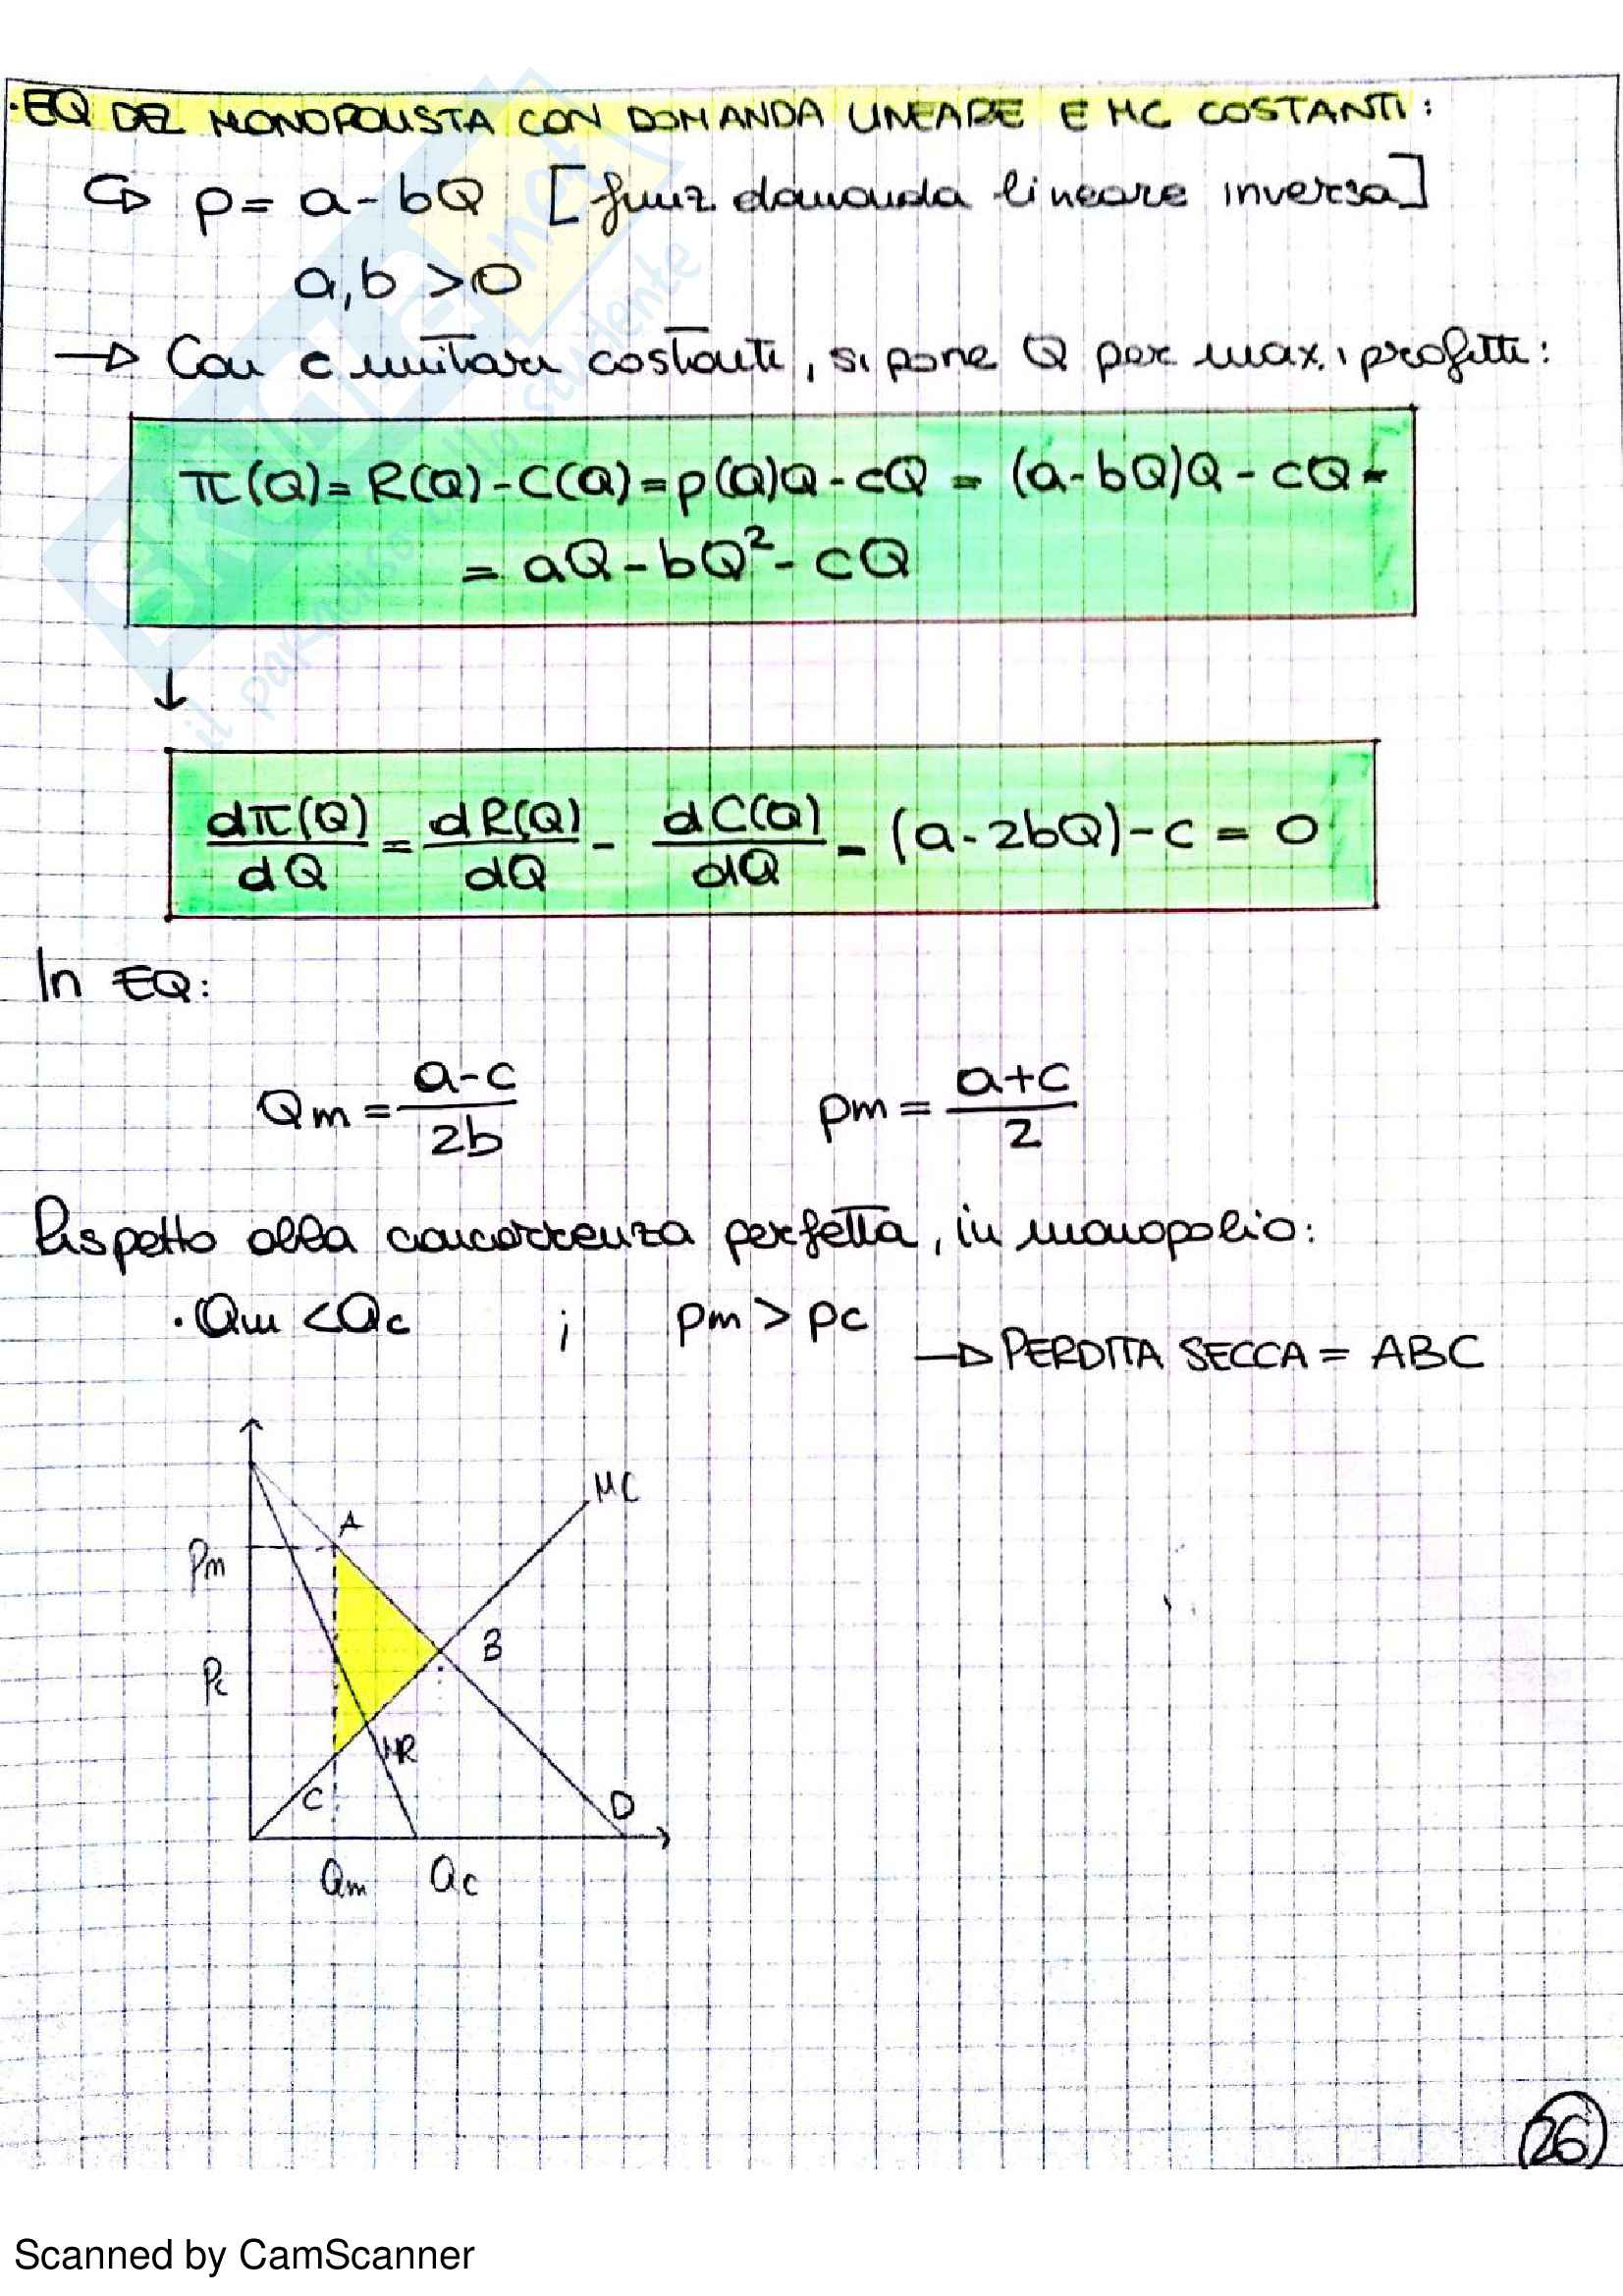 ·EQ DEL MONOPOLISTA CON DOMANDA LINEARE E MC COSTANTI:
↪ p= a-bQ [funz domanda lineare inversa]
a,b >0
→ Con c unitari costanti, si pone Q per max. i profitti:
π(Q)= R(Q)-C(Q)=p(Q)Q-cQ = (a-bQ)Q-cQ=
= aQ-bQ²-cQ
↓
dπ(Q)/dQ = dR(Q)/dQ - dC(Q)/dQ = (a-2bQ)-c = 0
In EQ:
Qm = a-c/2b pm = a+c/2
Rispetto alla concorrenza perfetta, in monopolio:
·Qm <Qc ; pm > pc
→ PERDITA SECCA = ABC
MC
A
Pm
B
Pc
MR
C
D
Qm Qc
26
Scanned by CamScanner
SKUOLA.net
il paradiso dello studente